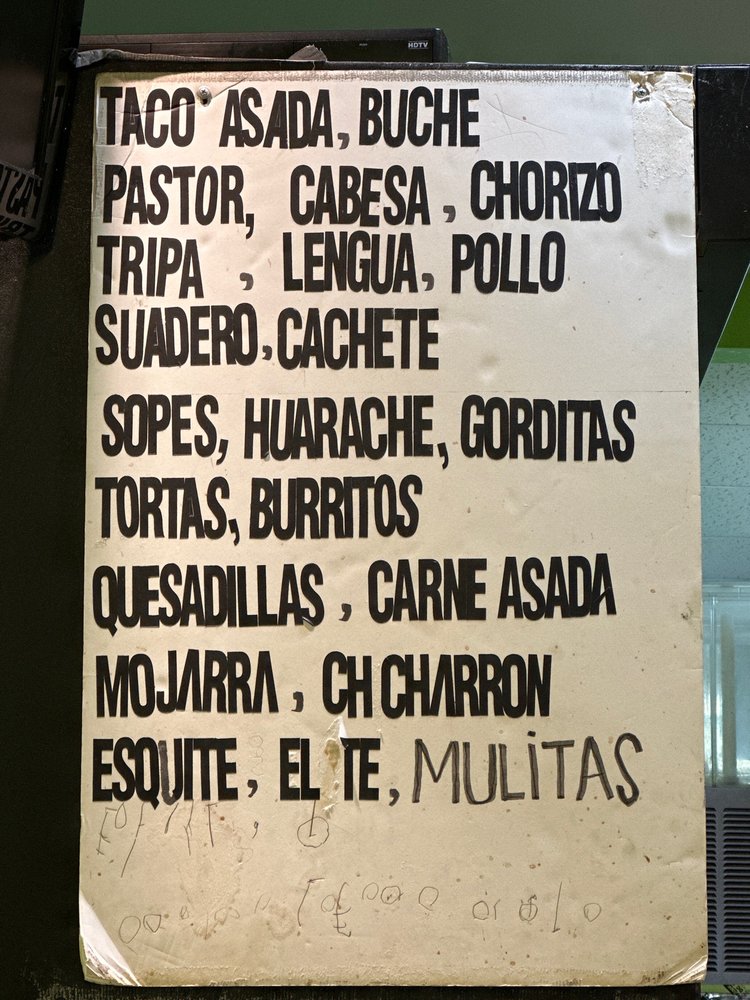 HDTV
TACO ASADA, BUCHE
PASTOR, CABESA, CHORIZO
TRIPA, LENGUA, POLLO
SUADERO, CACHETE
SOPES, HUARACHE, GORDITAS
TORTAS, BURRITOS
QUESADILLAS, CARNE ASADA
MOJARRA, CH CHARRON
ESQUITE, EL TE, MULiTAS